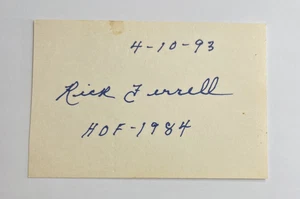 4-10-93
Rick Ferrell
HOF-1984